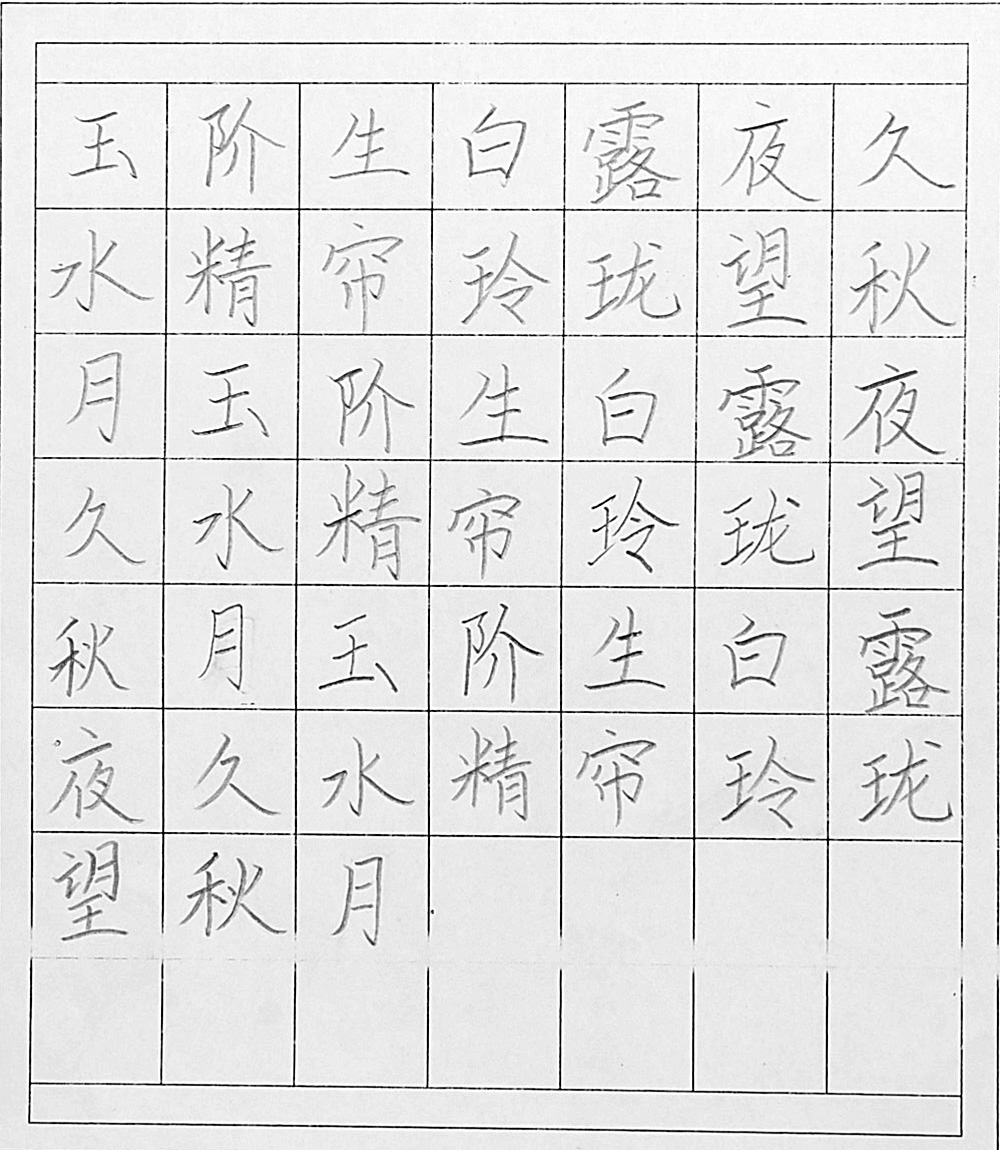 玉阶生白露夜久
水精帘玲珑望秋
月玉阶生白露夜
久水精帘玲珑望
秋月玉阶生白露
夜久水精帘玲珑
望秋月